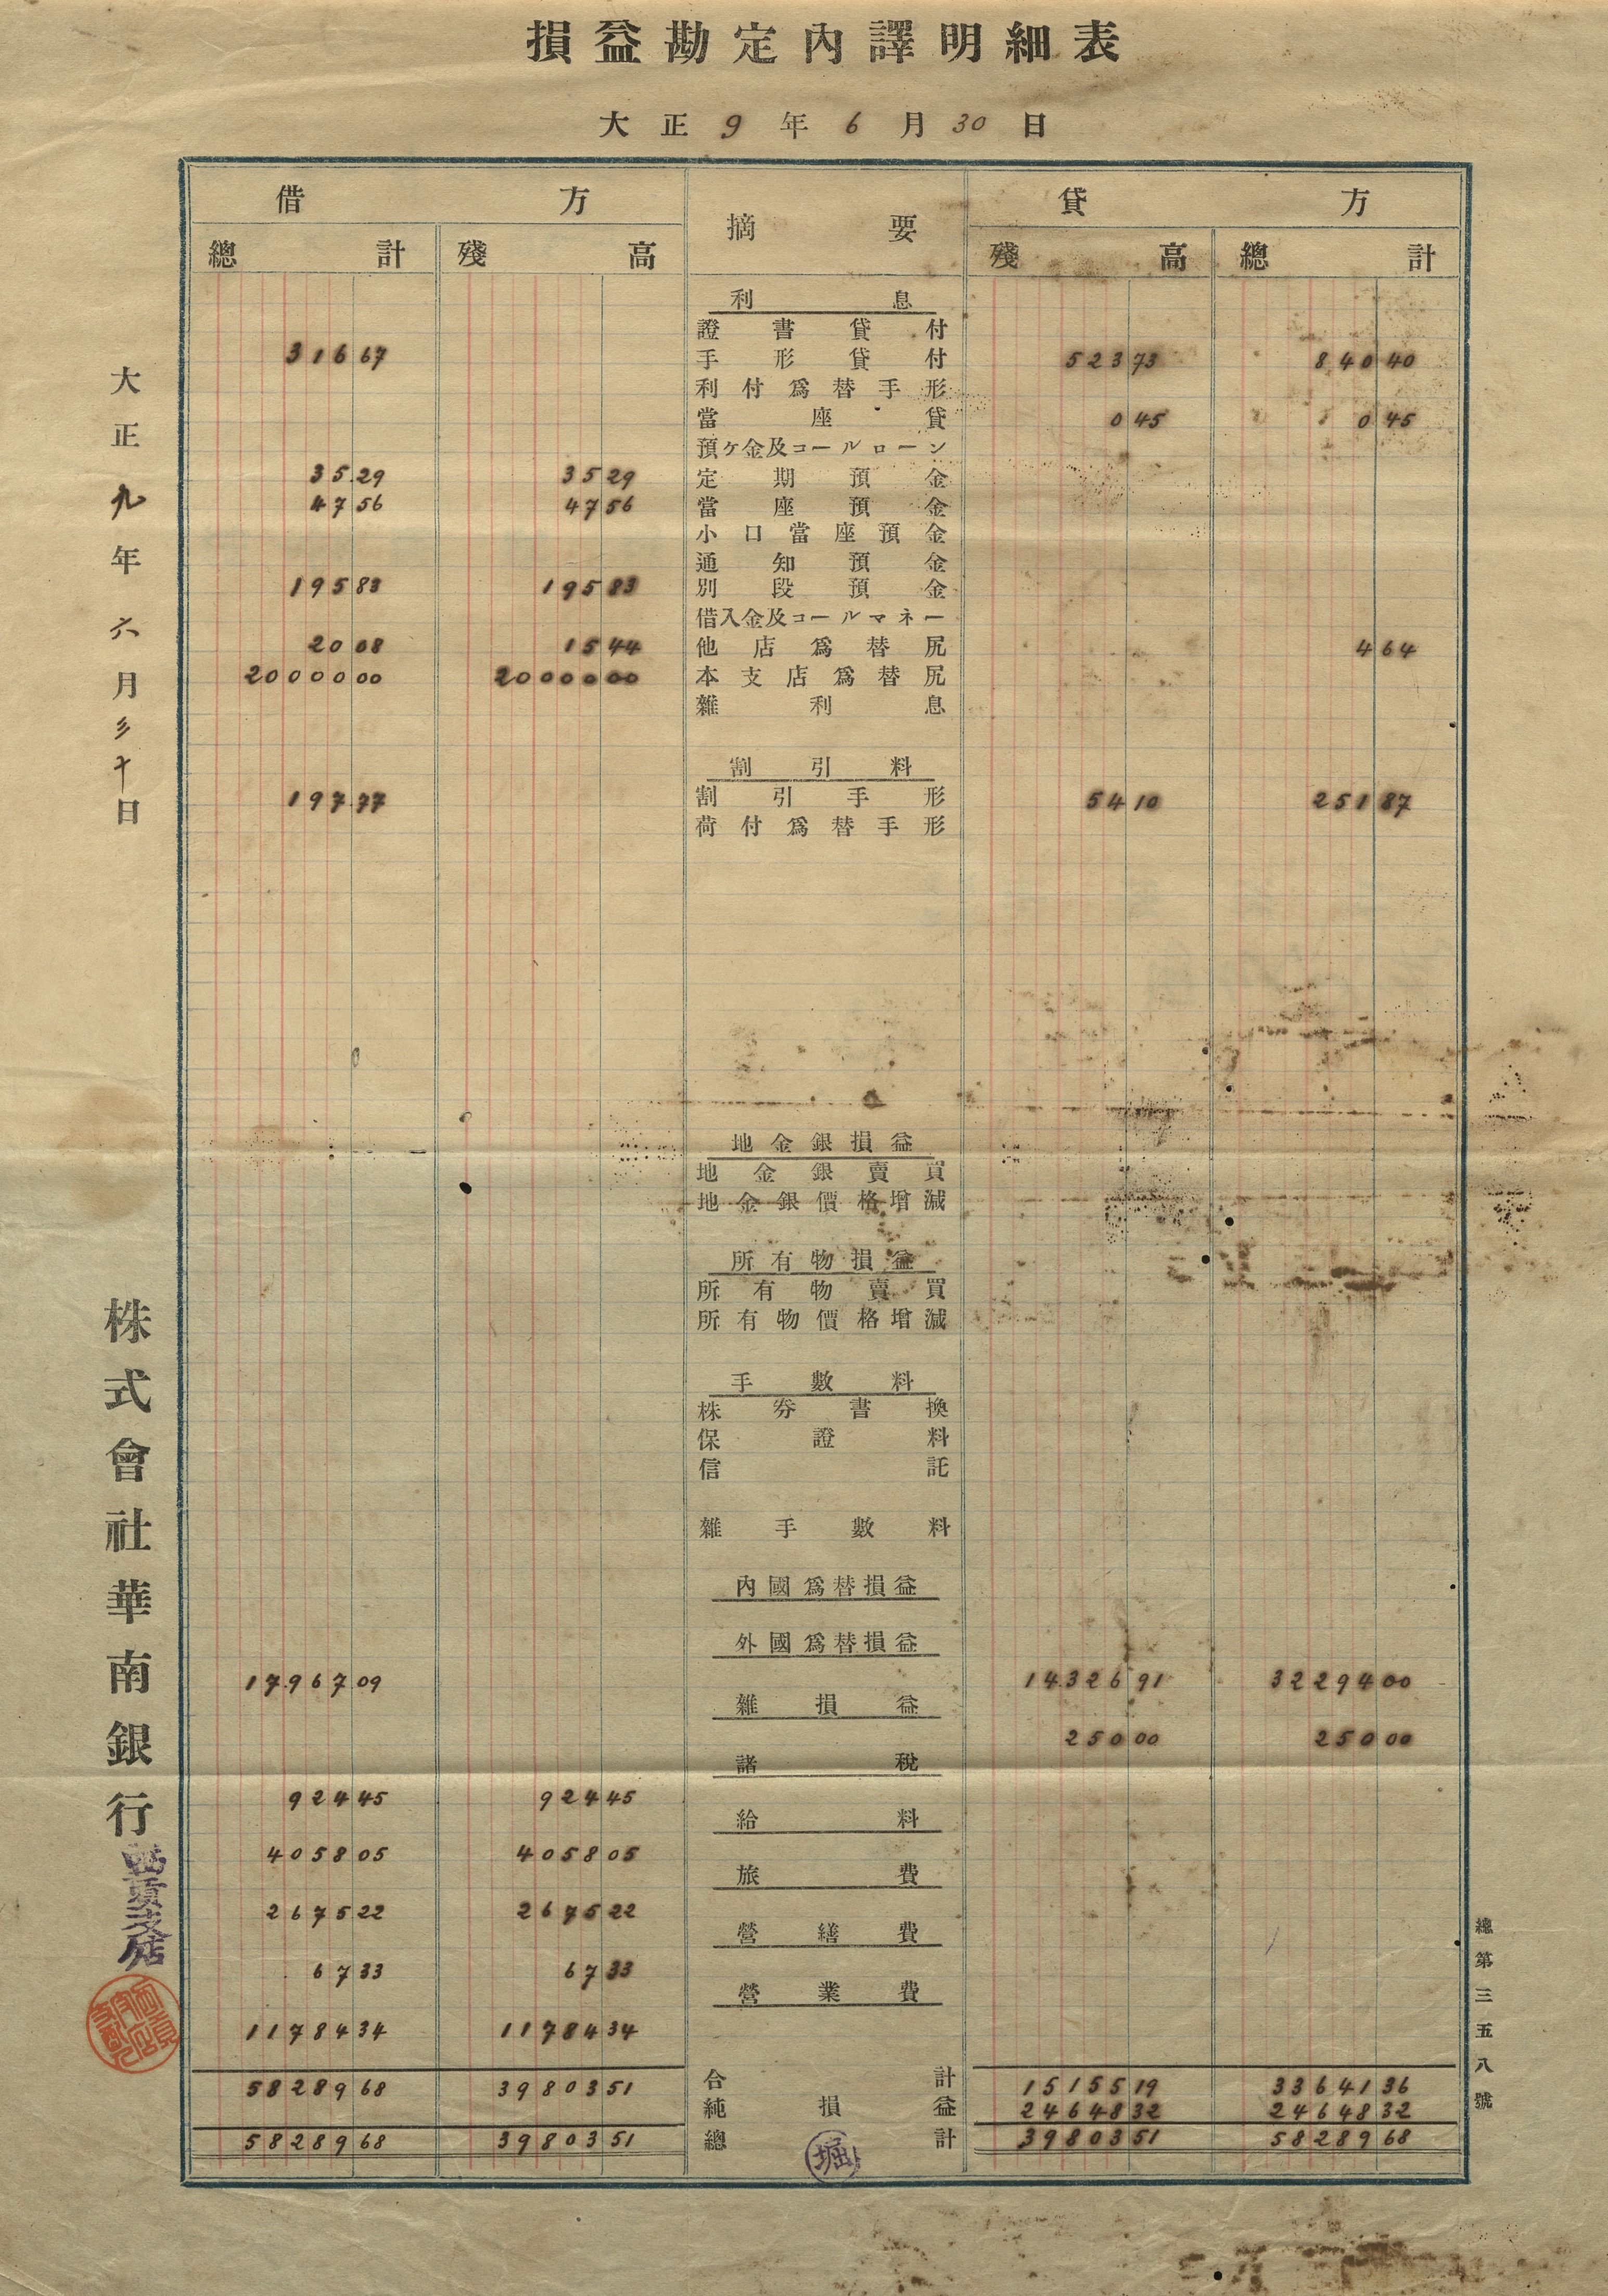 損益勘定內譯明細表
大正9年6月30日
借方 摘要 貸方
總計 殘高 殘高 總計
利息
證書貸付
316 67 手形貸付 523 73 840 40
利付爲替手形
當座貸 0 45 0 45
預ケ金及コールローン
35 29 35 29 定期預金
47 56 47 56 當座預金
小口當座預金
通知預金
195 83 195 83 別段預金
借入金及コールマネー
20 08 15 44 他店爲替尻 4 64
20000 00 20000 00 本支店爲替尻
雜利息
割引料
197 77 割引手形 54 10 251 87
荷付爲替手形
地金銀損益
地金銀賣買
地金銀價格增減
所有物損益
所有物賣買
所有物價格增減
手數料
株券書換
保證料
信託
雜手數料
內國爲替損益
外國爲替損益
17967 09 14326 91 32294 00
雜損益
250 00 250 00
諸稅
924 45 924 45
給料
4058 05 4058 05
旅費
2675 22 2675 22
營繕費
67 33 67 33
營業費
11784 34 11784 34
58289 68 39803 51 合計 15155 19 33641 36
純損益 24648 32 24648 32
58289 68 39803 51 總計 39803 51 58289 68
堀
大正九年六月三十日
株式會社華南銀行
支店
總第三五八號